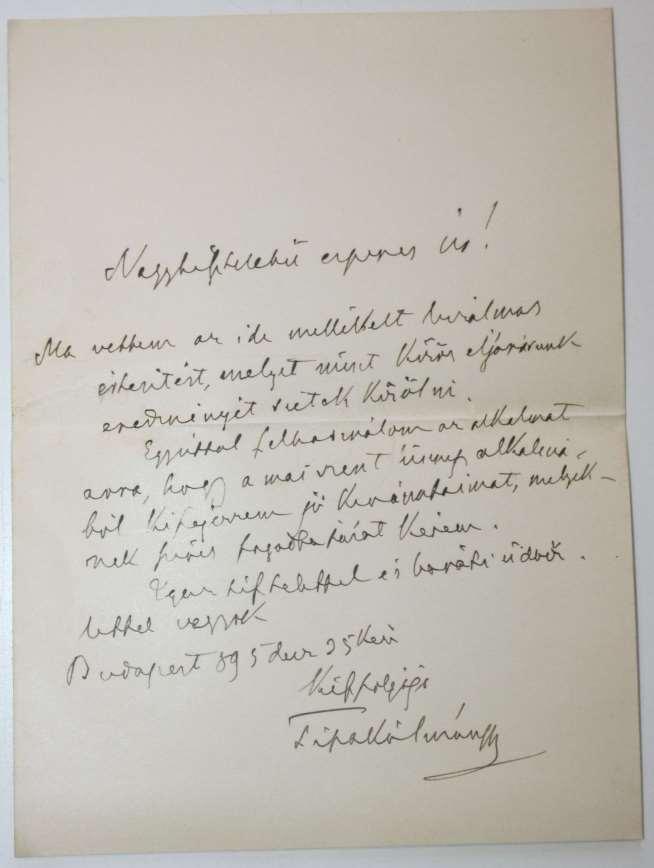 Nagytiszteletű esperes úr!
Ma vettem az ide mellékelt bizalmas
értesitést, melyet mint közös eljárásunk
eredményét sietek közölni.
Egyúttal felhasználom az alkalmat
arra, hogy a mai szent ünnep alkalmá-
ból kifejezzem jó kivánataimat, melyek-
nek szíves fogadtatását kérem.
Igaz tisztelettel és baráti üdvöz-
lettel vagyok
Budapest 895 dec 25kén
kész szolgája
Tisza Kálmán